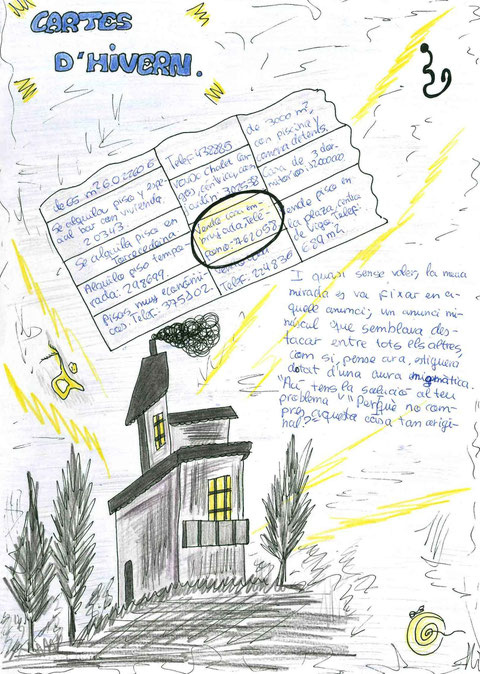 CARTES
D'HIVERN.
de 65 m2. 60.2260 €
Se alquila piso y
al bar con vivienda.
20343.
Se alquila piso en
Torrededona
Alquilo piso tempo-
rada: 298699.
Pisos muy económi-
cos. Telef: 375102.
Telef: 438885
Vendo chalet
céntrico, con
jardín. 307538
Vendo casa em-
brujada. Telé-
fono: 467058
Vendo
Telef: 224836
de 3000 m2,
con piscina y
cancha de tenis.
Casa de 3 dor-
mitorios.
Vendo piso en
la plaza, centro
de Vigo. Telef:
689 m2.
I quasi sense voler, la meva
mirada es va fixar en a-
quell anunci, un anunci mi-
núscul que semblava des-
tacar entre tots els altres,
com si, penso ara, estigués
dotat d'una aura enigmàtica.
"Aquí tens la solució al teu
problema" "Perquè no com-
pres aquesta casa tan origi-
nal?"